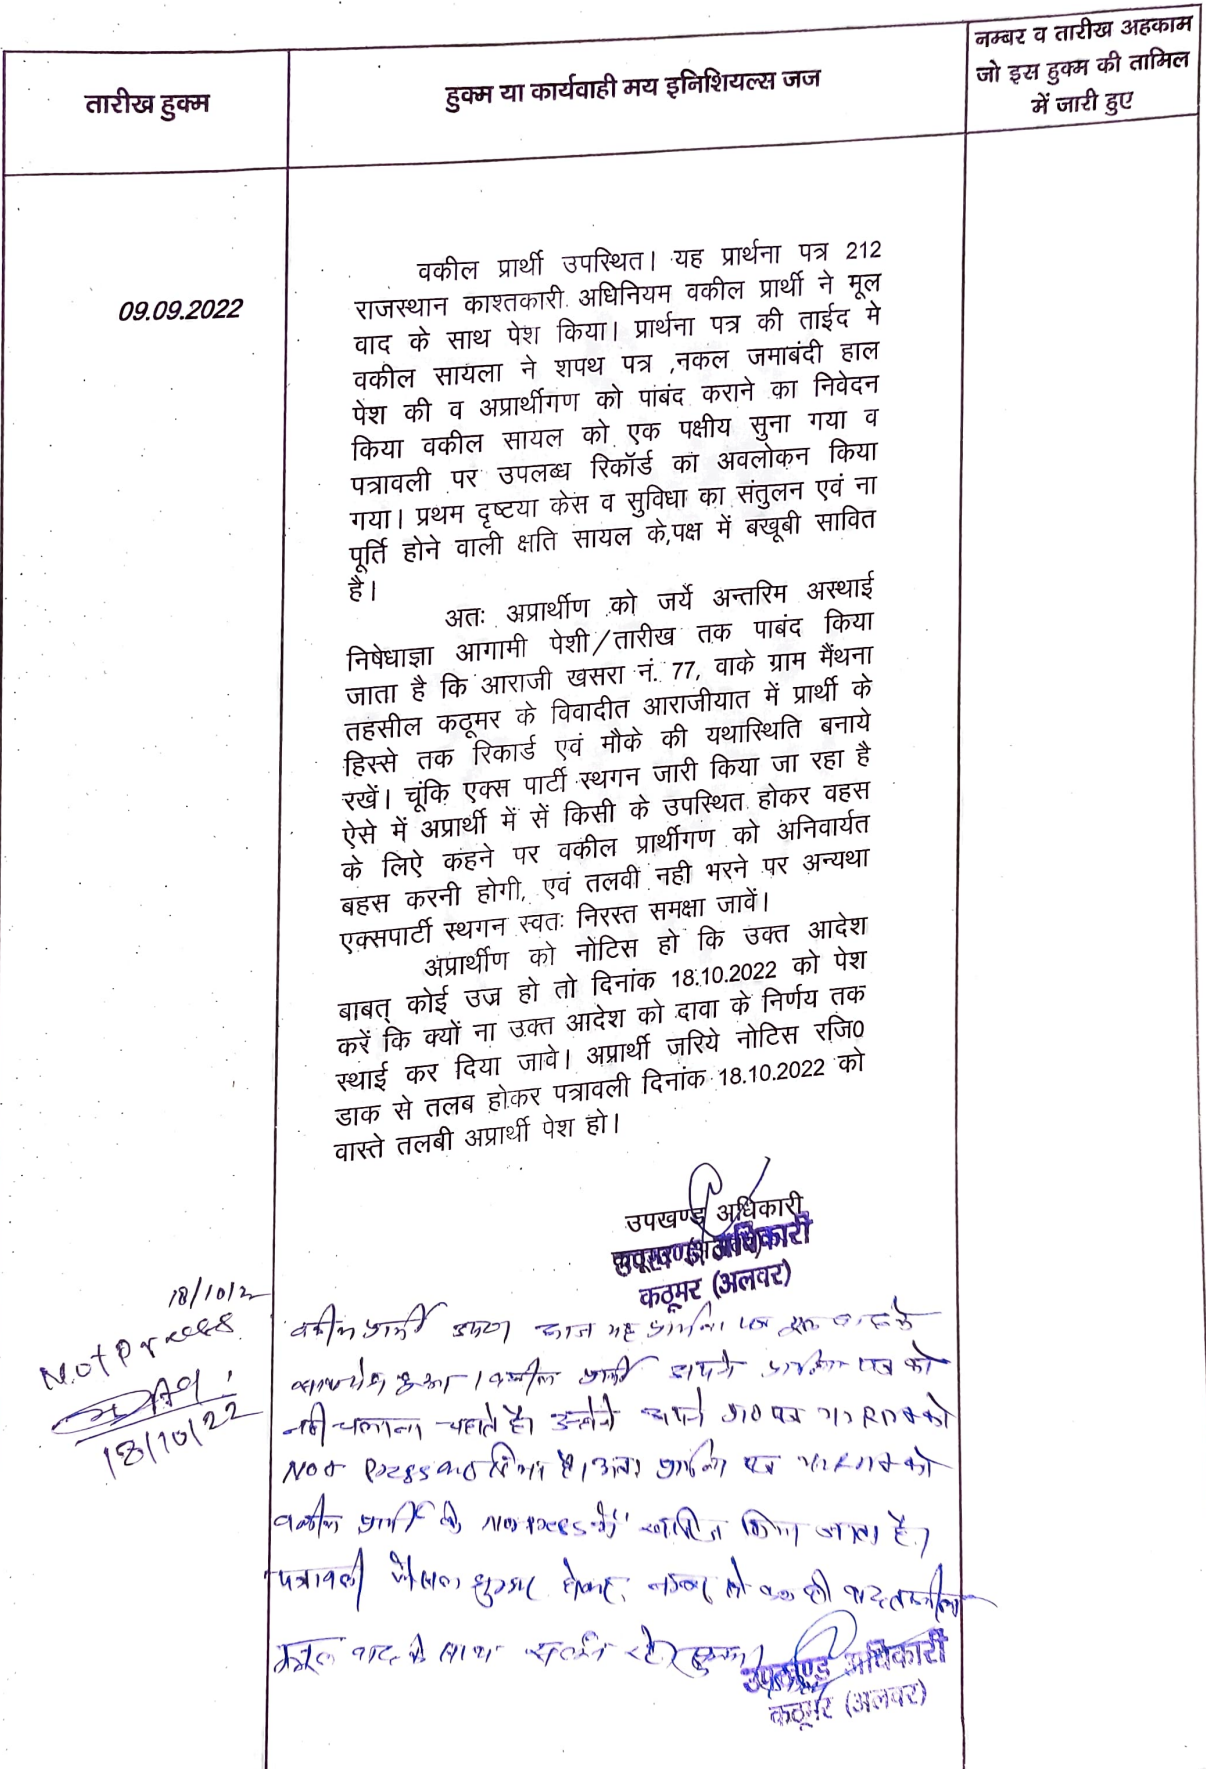 तारीख हुक्म
हुक्म या कार्यवाही मय इनिशियल्स जज
नम्बर व तारीख अहकाम
जो इस हुक्म की तामिल
में जारी हुए
09.09.2022
वकील प्रार्थी उपस्थित। यह प्रार्थना पत्र 212
राजस्थान काश्तकारी अधिनियम वकील प्रार्थी ने मूल
वाद के साथ पेश किया। प्रार्थना पत्र की ताईद मे
वकील सायला ने शपथ पत्र ,नकल जमाबंदी हाल
पेश की व अप्रार्थीगण को पाबंद कराने का निवेदन
किया वकील सायल को एक पक्षीय सुना गया व
पत्रावली पर उपलब्ध रिकॉर्ड का अवलोकन किया
गया। प्रथम दृष्टया केस व सुविधा का संतुलन एवं ना
पूर्ति होने वाली क्षति सायल के,पक्ष में बखूबी सावित
है।
अतः अप्रार्थीण को जर्ये अन्तरिम अस्थाई
निषेधाज्ञा आगामी पेशी/तारीख तक पाबंद किया
जाता है कि आराजी खसरा नं. 77, वाके ग्राम मैंथना
तहसील कठूमर के विवादीत आराजीयात में प्रार्थी के
हिस्से तक रिकार्ड एवं मौके की यथास्थिति बनाये
रखें। चूंकि एक्स पार्टी स्थगन जारी किया जा रहा है
ऐसे में अप्रार्थी में सें किसी के उपस्थित होकर वहस
के लिऐ कहने पर वकील प्रार्थीगण को अनिवार्यत
बहस करनी होगी, एवं तलवी नही भरने पर अन्यथा
एक्सपार्टी स्थगन स्वतः निरस्त समक्षा जावें।
अप्रार्थीण को नोटिस हो कि उक्त आदेश
बाबत् कोई उज्र हो तो दिनांक 18.10.2022 को पेश
करें कि क्यों ना उक्त आदेश को दावा के निर्णय तक
स्थाई कर दिया जावे। अप्रार्थी जरिये नोटिस रजि0
डाक से तलब होकर पत्रावली दिनांक 18.10.2022 को
वास्ते तलबी अप्रार्थी पेश हो।
उपखण्ड अधिकारी
उपखण्ड अधिकारी
कठूमर (अलवर)
18/10/2
Not Press
18/10/22
वकील प्रार्थी आज यह प्रार्थना पत्र मूल वाद के
साथ पेश हुआ। वकील प्रार्थी अपने प्रार्थना पत्र को
नही चलाना चहाते है। उन्होने अपने पत्र को
Not Press कर दिया है। अतः प्रार्थना पत्र को
वकील प्रार्थी के खारिज किया जाता है।
पत्रावली फैसल शुमार होकर नम्बर से कम हो
मूल वाद के साथ संलग्न रहे।
उपखण्ड अधिकारी
कठूमर (अलवर)